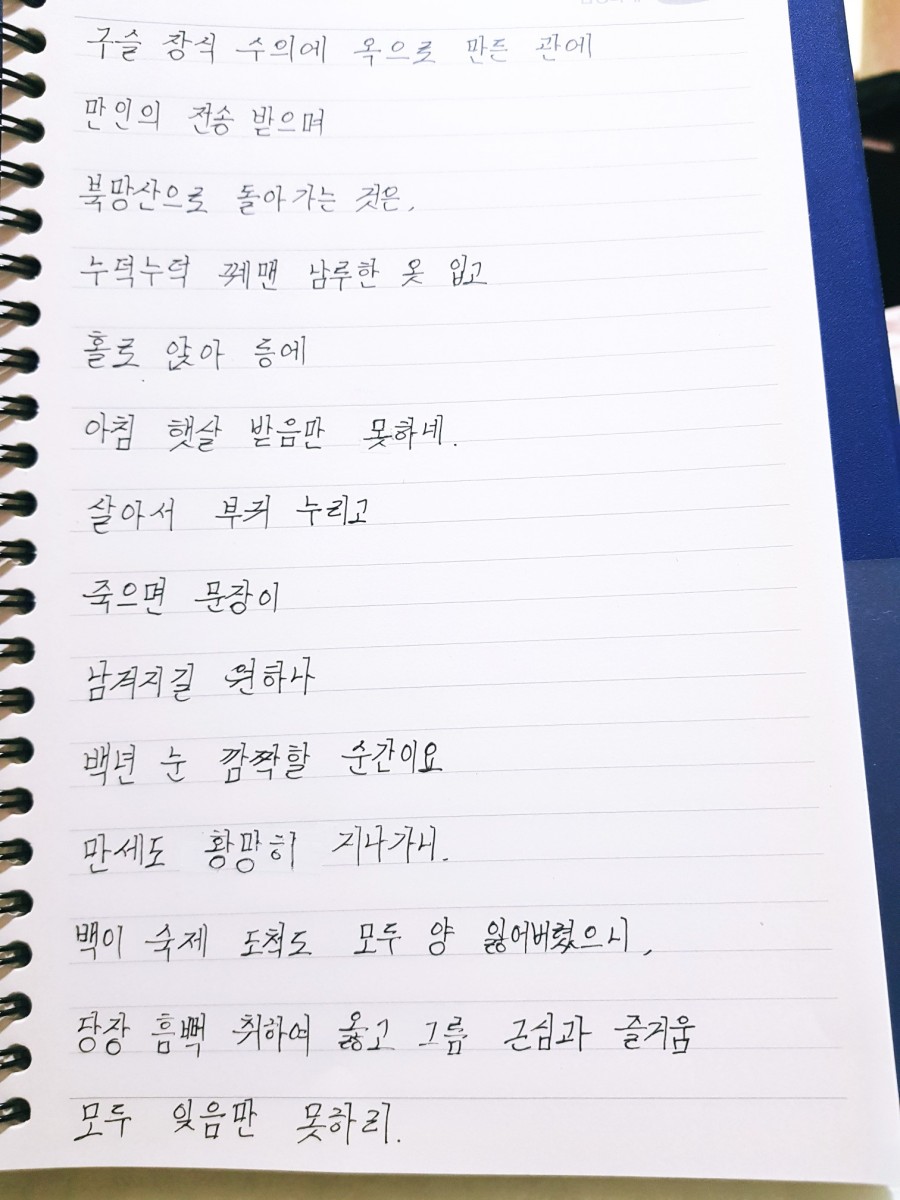 구슬 장식 수의에 옥으로 만든 관에
만인의 전송 받으며
북망산으로 돌아가는 것은,
누덕누덕 꿰맨 남루한 옷 입고
홀로 앉아 등에
아침 햇살 받음만 못하네.
살아서 부귀 누리고
죽으면 문장이
남겨지길 원하나
백년 눈 깜짝할 순간이요
만세도 황망히 지나가니.
백이 숙제 도척도 모두 양 잃어버렸으니,
당장 흠뻑 취하여 옳고 그름 근심과 즐거움
모두 잊음만 못하리.